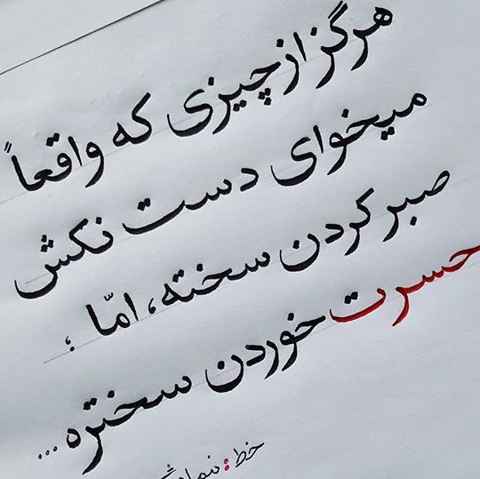 هرگز از چیزی که واقعاً
میخوای دست نکش
صبر کردن سخته، امّا ؛
حسرت خوردن سختره...
خط: